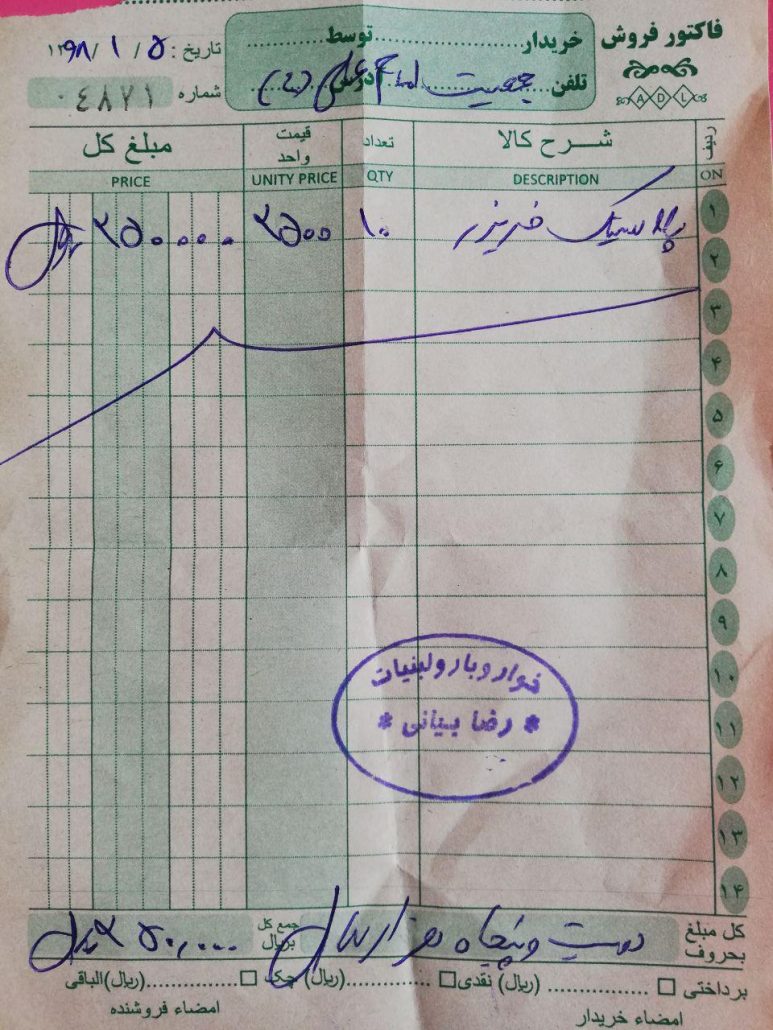 فاکتور فروش
خریدار.................توسط.................
تلفن.......جمعیت امام علی (ع).......آدرس.......
تاریخ : ۵ / ۱ / ۱۳۹۸
شماره ۰۴۸۷۱
A D L
ردیف شـــرح کالا تعداد قیمت واحد مبلغ کل
NO DESCRIPTION QTY UNITY PRICE PRICE
۱ پلاستیک فریزر ۱۰ ۲۵۰۰ ۲۵۰۰۰۰ ریال
۲
۳
۴
۵
۶
۷
۸
۹
۱۰
۱۱
۱۲
۱۳
۱۴
خواروبارولبنیات
* رضا بیانی *
کل مبلغ بحروف دویست و پنجاه هزار ریال جمع کل بریال ۲۵۰,۰۰۰ ریال
پرداختی □ ................ (ریال) نقدی □ ................ (ریال) چک □ ................(ریال) الباقی
امضاء خریدار امضاء فروشنده